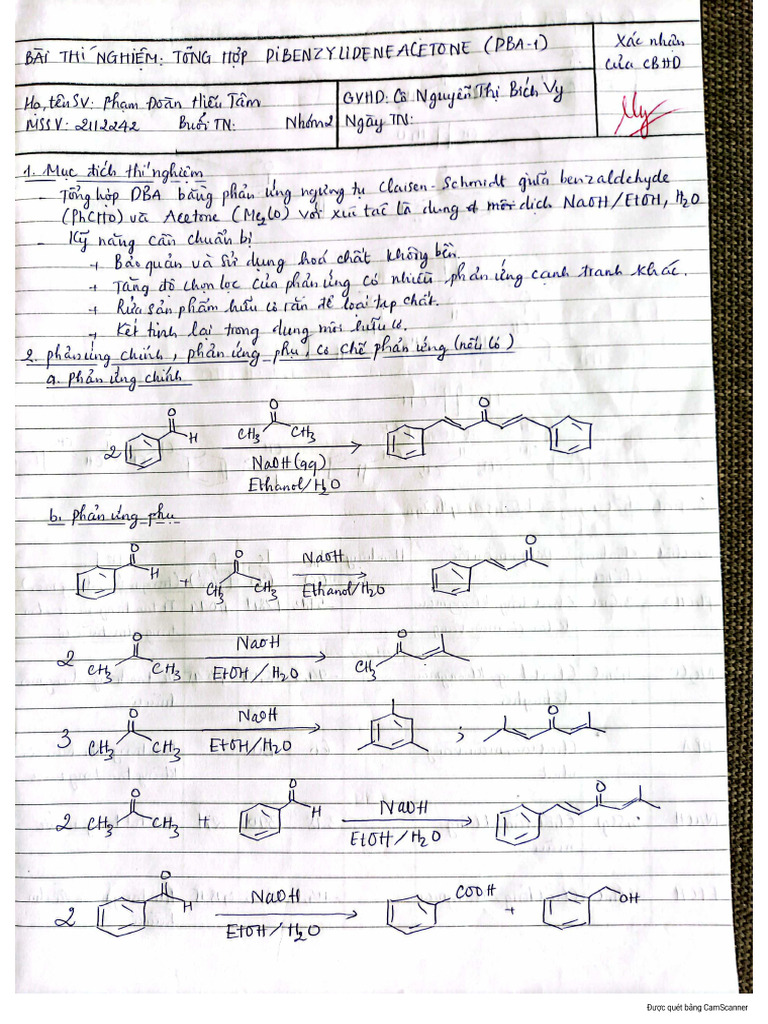 BÀI THÍ NGHIỆM: TỔNG HỢP DIBENZYLIDENEACETONE (DBA-1)
Xác nhận
của CBHD
Họ, tên SV: Phạm Đoàn Hiếu Tâm
GVHD: Cô Nguyễn Thị Bích Vy
MSSV: 2112242 Buổi TN: Nhóm 2
Ngày TN:
1. Mục đích thí nghiệm
- Tổng hợp DBA bằng phản ứng ngưng tụ Claisen-Schmidt giữa benzaldehyde
(PhCHO) và Acetone (Me2CO) với xúc tác là dung dịch NaOH/EtOH, H2O
- Kỹ năng cần chuẩn bị
+ Bảo quản và sử dụng hoá chất không bền.
+ Tăng độ chọn lọc của phản ứng có nhiều phản ứng cạnh tranh khác.
+ Rửa sản phẩm hữu cơ rắn để loại tạp chất.
+ Kết tinh lại trong dung môi hữu cơ.
2. phản ứng chính, phản ứng phụ, cơ chế phản ứng (nếu có)
a. phản ứng chính
2 O H O CH3 CH3 O
NaOH (aq)
Ethanol/H2O
b. phản ứng phụ
O H + O CH3 CH3 NaOH O
Ethanol/H2O
2 O CH3 CH3 NaOH O CH3
EtOH/H2O
3 O CH3 CH3 NaOH ; O
EtOH/H2O
2 O CH3 CH3 + O H NaOH O
EtOH/H2O
2 O H NaOH COOH + OH
EtOH/H2O
Được quét bằng CamScanner